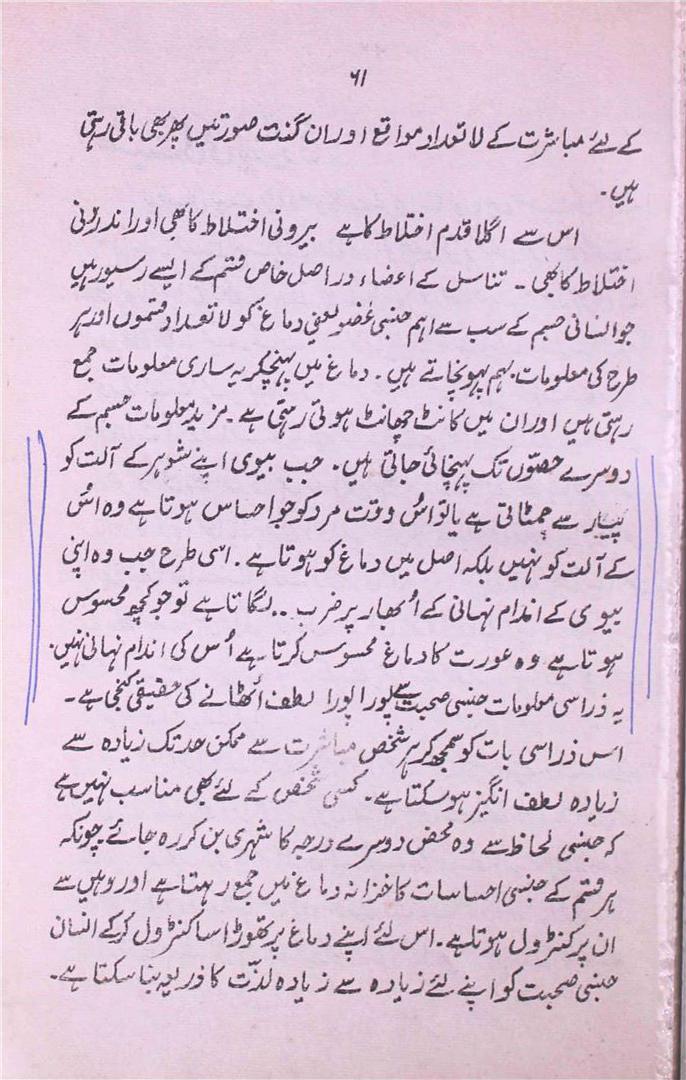 ۶۱
کے لئے مباشرت کے لاتعداد مواقع اور ان گنت صورتیں پھر بھی باقی رہتی
ہیں۔
اس سے اگلا قدم اختلاط کا ہے بیرونی اختلاط کا بھی اور اندرونی
اختلاط کا بھی ۔ تناسل کے اعضاء در اصل خاص قسم کے ایسے رسیور ہیں
جو انسانی جسم کے سب سے اہم جنسی عضو یعنی دماغ کو لاتعداد قسموں اور ہر
طرح کی معلومات بہم پہونچاتے ہیں۔ دماغ میں پہنچکر یہ ساری معلومات جمع
رہتی ہیں اور ان میں کانٹ چھانٹ ہوتی رہتی ہے۔ مزید معلومات جسم کے
دوسرے حصوں تک پہنچائی جاتی ہیں۔ جب بیوی اپنے شوہر کے آلت کو
پیار سے چمٹاتی ہے یا تو اُس وقت مرد کو جو احساس ہوتا ہے وہ اُس
کے آلت کو نہیں بلکہ اصل میں دماغ کو ہوتا ہے۔ اسی طرح جب وہ اپنی
بیوی کے اندام نہانی کے اُبھار پر ضرب ۔۔ لگاتا ہے تو جو کچھ محسوس
ہوتا ہے وہ عورت کا دماغ محسوس کرتا ہے اُس کی اندام نہانی نہیں۔
یہ ذرا سی معلومات جنسی صحبت سے پورا پورا لطف اُٹھانے کی حقیقی کنجی ہے۔
اس ذرا سی بات کو سمجھ کر ہر شخص مباشرت سے ممکن حد تک زیادہ سے
زیادہ لطف انگیز ہو سکتا ہے۔ کسی شخص کے لئے بھی مناسب نہیں ہے
کہ جنسی لحاظ سے وہ محض دوسرے درجہ کا شہری بن کر رہ جائے چونکہ
ہر قسم کے جنسی احساسات کا خزانہ دماغ میں جمع رہتا ہے اور وہیں سے
ان پر کنٹرول ہوتا ہے۔ اس لئے اپنے دماغ پر تھوڑا سا کنٹرول کر کے انسان
جنسی صحبت کو اپنے لئے زیادہ سے زیادہ لذت کا ذریعہ بنا سکتا ہے۔